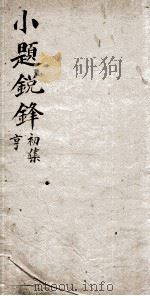 小題銳鋒
初集
亨
研狗
mtoou.info